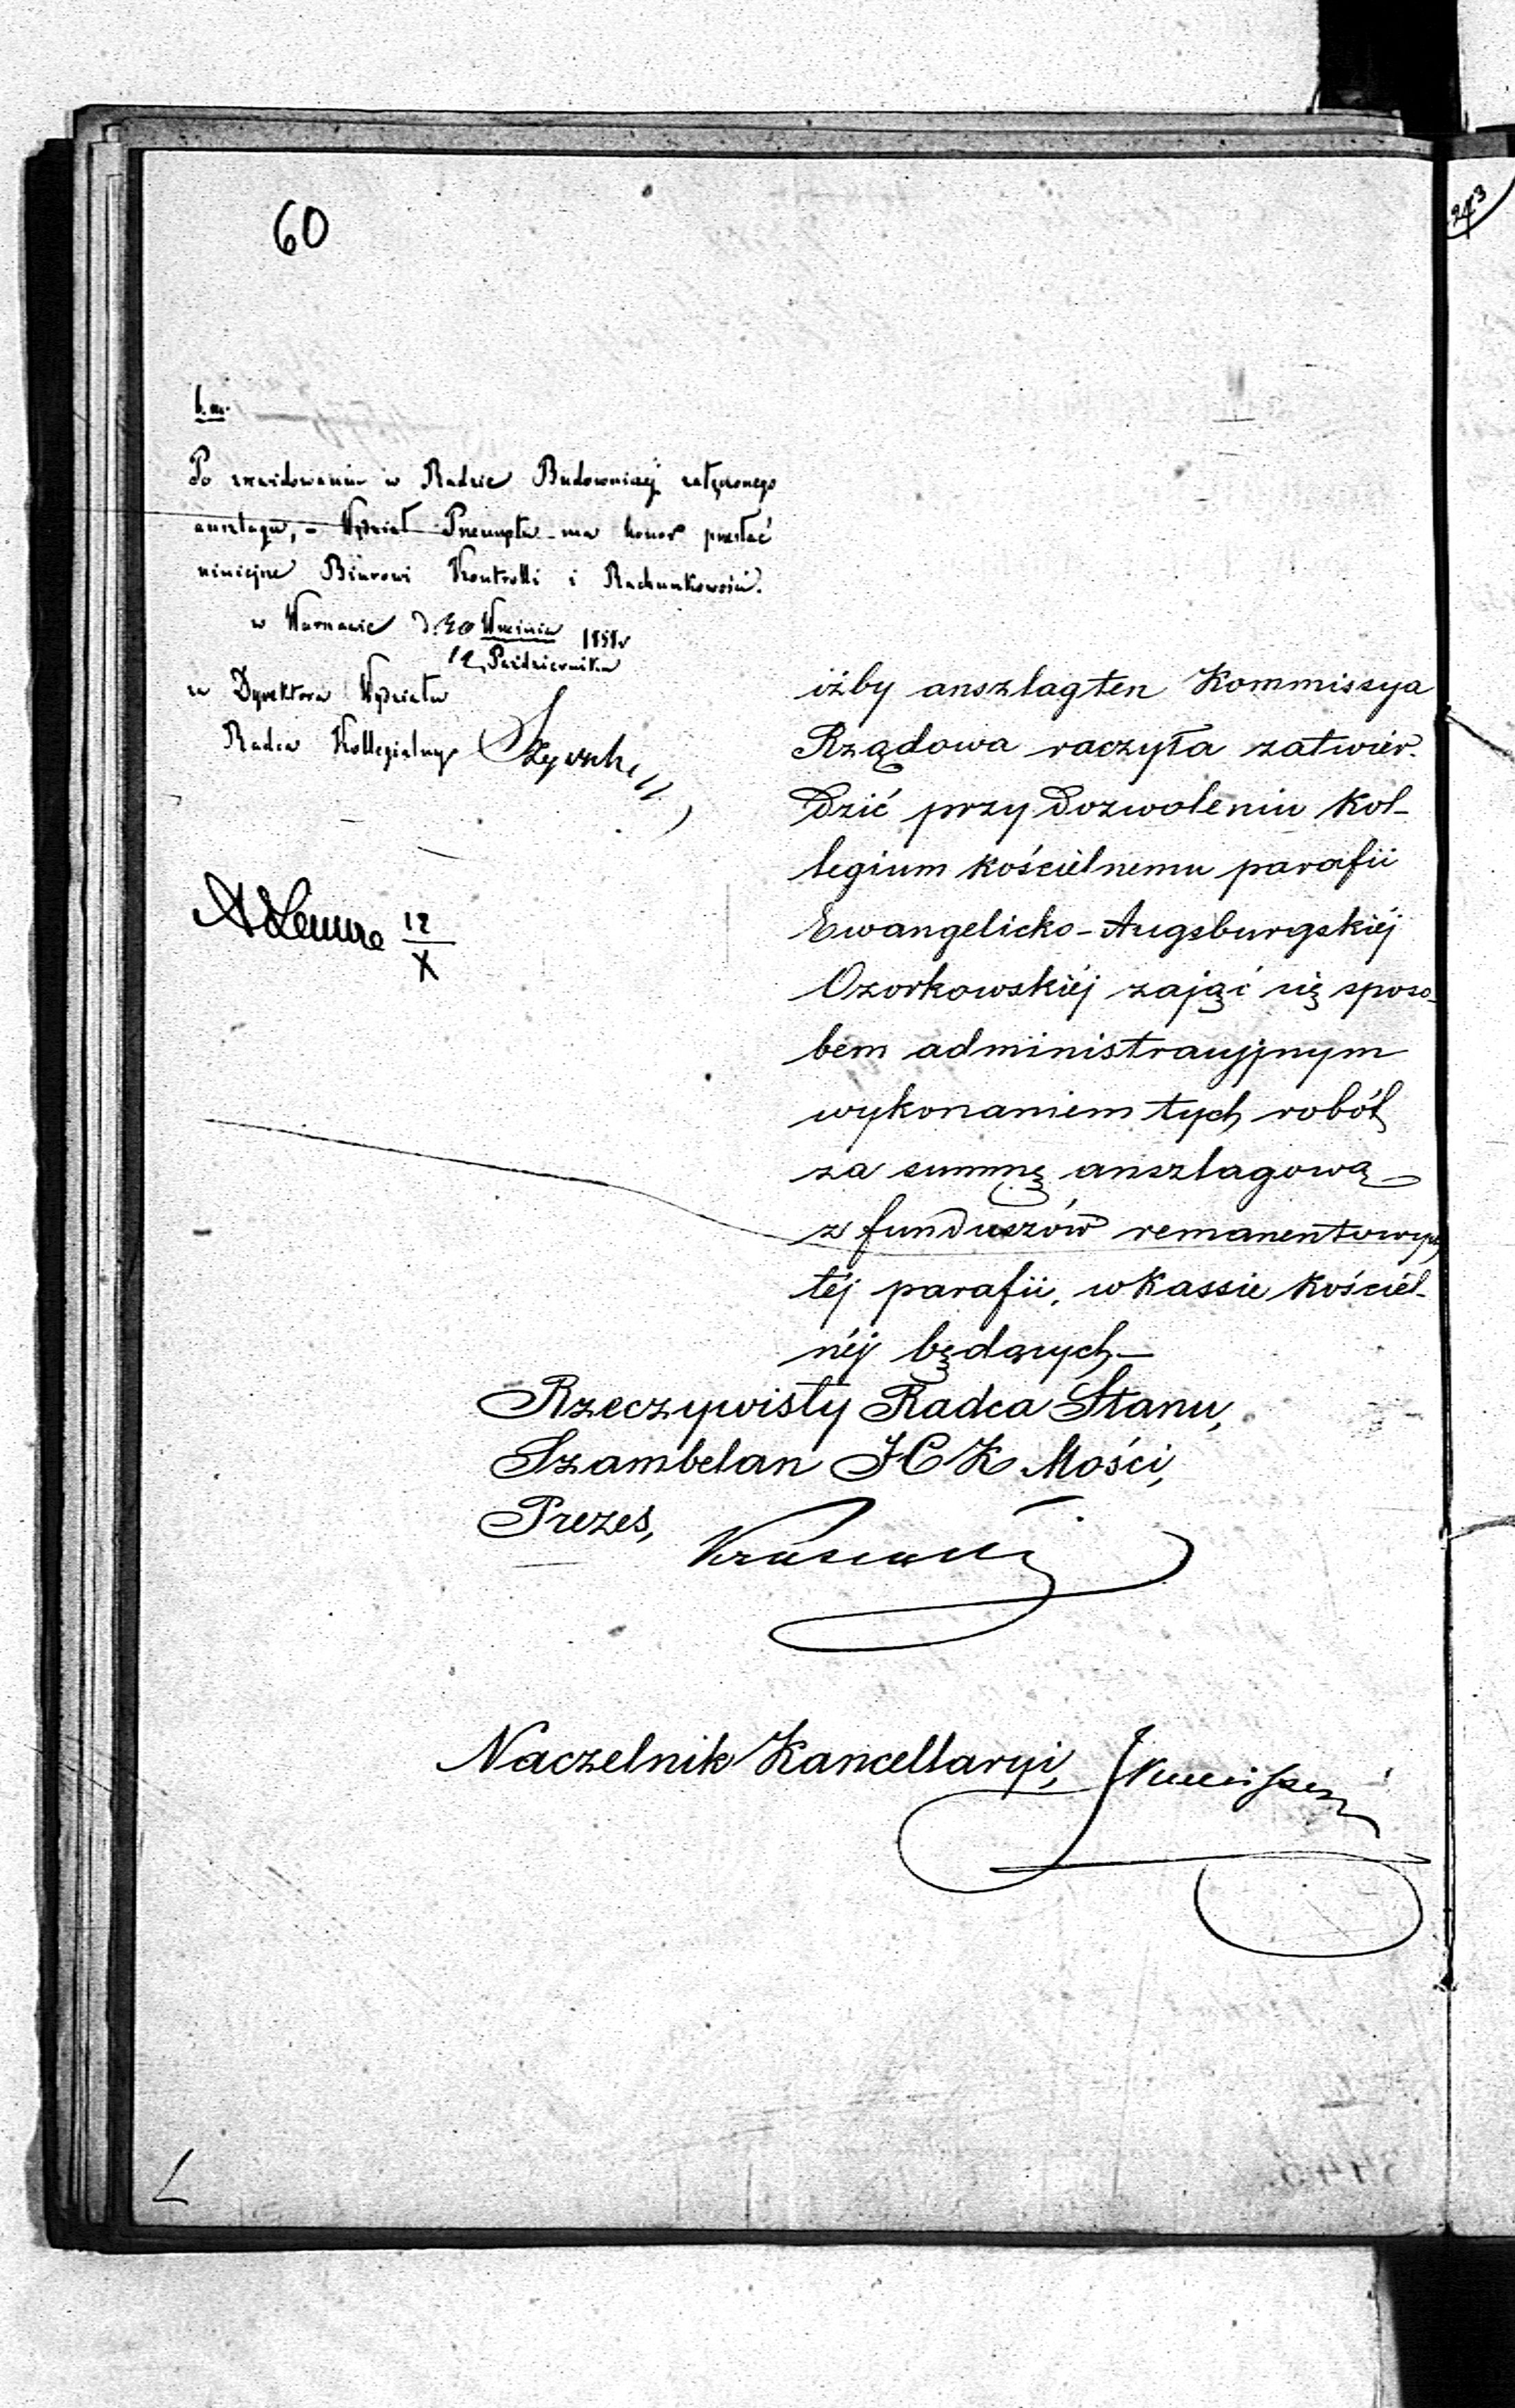 60
243
b. m.
Po zrewidowaniu w Radzie Budowniczej załączonego
anszlagu, – Wydział Przemysłu ma honor przesłać
niniejsze Biurowi Kontrolli i Rachunkowości.
w Warszawie d. 30 Września 1858 r
12 Października
za Dyrektora Wydziału
Radca Kollegialny
12
X
iżby anszlag ten Kommissya
Rządowa raczyła zatwier-
dzić przy dozwoleniu Kol-
legium kościelnemu parafii
Ewangelicko-Augsburgskiéj
Ozorkowskiéj zająć się sposo-
bem administracyjnym
wykonaniem tych robót
za summę anszlagową
z funduszów remanentowych
téj parafii, w Kassie Kościel-
néj będących —
Rzeczywisty Radca Stanu,
Szambelan JCK Mości,
Prezes,
Naczelnik Kancellaryi,